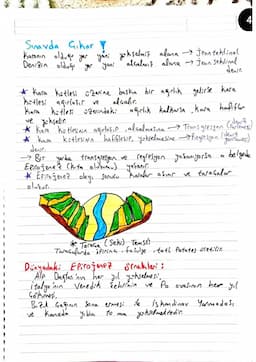 4
Sınavda Çıkar
Karanın olduğu yer yani yükselmiş alana → Jeoantiklinal
Denizin olduğu yer yani alçalmış alana → Jeosenklinal
denir.
★ Kara kütlesi üzerine başka bir ağırlık gelirse kara
kütlesi ağırlaşır ve alçalır.
Kara kütlesi üzerindeki ağırlık kalkarsa kara hafifler
ve yükselir.
★ Kara kütlesinin ağırlaşıp alçalmasına → Transgresyon
★ Kara kütlesinin hafifleyip yükselmesine → Regresyon
denir.
→ Bir yerde transgresyon ve regresyon yaşanıyorsa o bölgede
Epirojenez (kıta oluşumu) yaşanır.
★ Epirojenez olayı sonucu karalar oluşur ve taraçalar
oluşur.
★ Taraça (Seki) Temsili
Taraçalarda
Dünyadaki Epirojenez Örnekleri:
Alp Dağları'nın her yıl yükselmesi,
İtalya'nın Venedik şehrinin ve Po ovasının her yıl
çökmesi,
Buzul Çağının sona ermesi ile İskandinav Yarımadası
ve Kanada yılda 1 cm yükselmektedir.